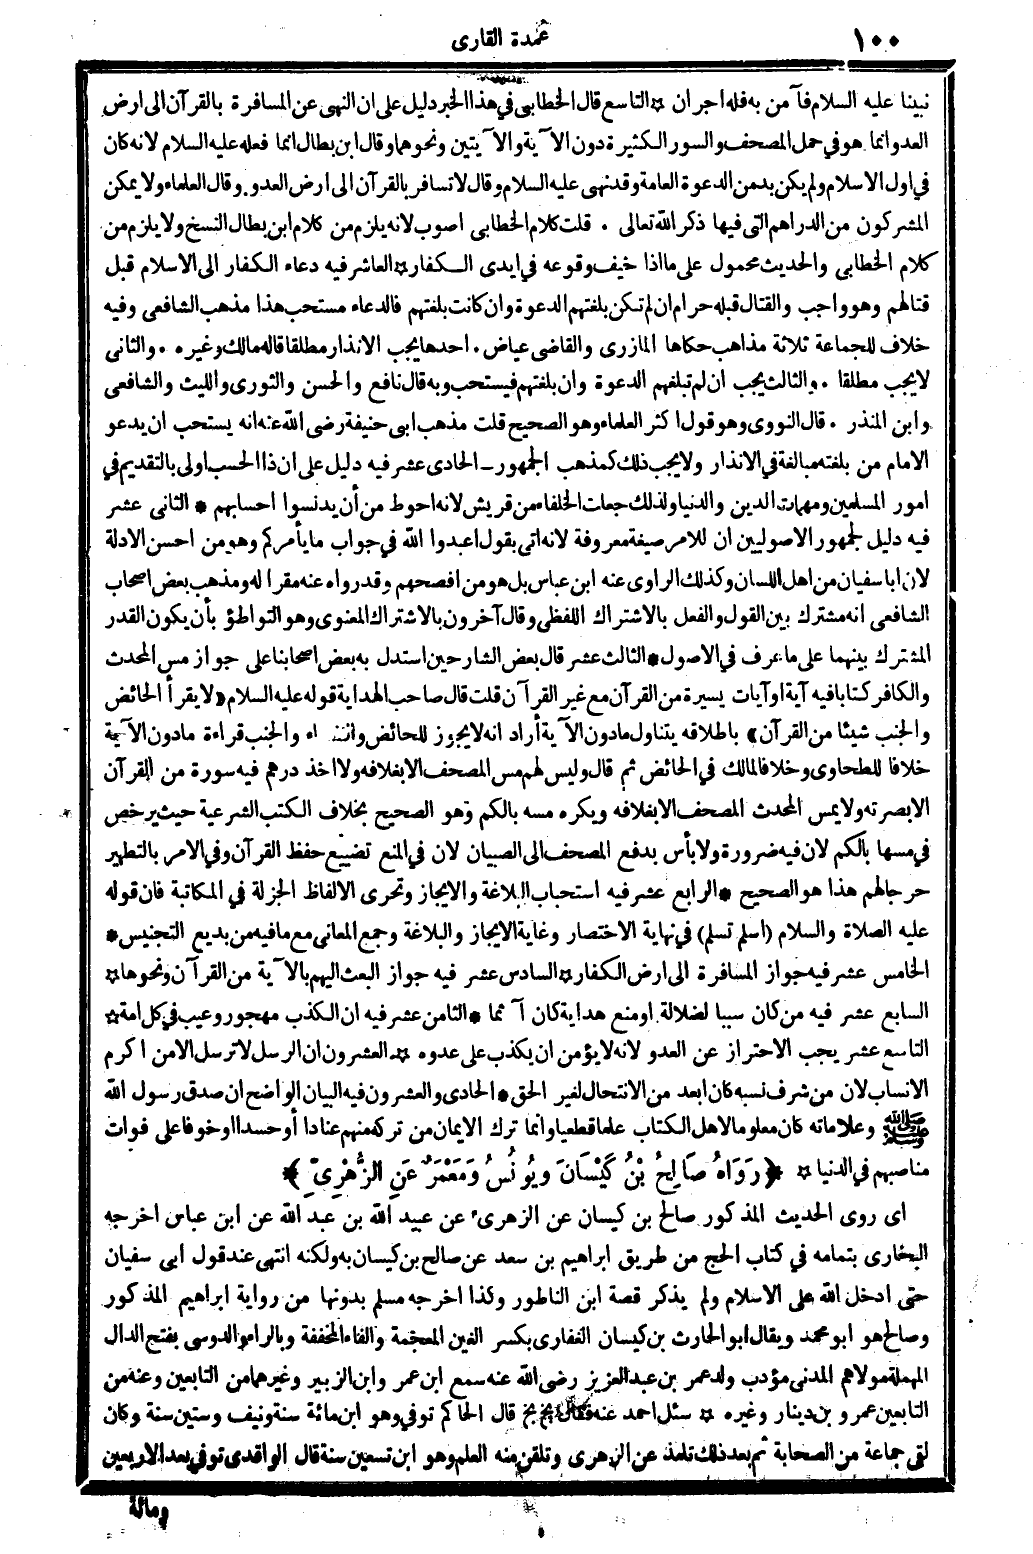 ١٠٠
عمدة القارى
نبينا عليه السلام فآمن به فله اجران ☆ التاسع قال الخطابى فى هذا الخبر دليل على ان النهى عن المسافرة بالقرآن الى ارض
العدو انما هو فى حمل المصحف والسور الكثيرة دون الآية والآيتين ونحوهما وقال ابن بطال انما فعله عليه السلام لانه كان
فى اول الاسلام ولم يكن بد من الدعوة العامة وقد نهى عليه السلام وقال لا تسافر بالقرآن الى ارض العدو. وقال العلماء ولا يمكن
المشركون من الدراهم التى فيها ذكر الله تعالى . قلت كلام الخطابى اصوب لانه يلزم من كلام ابن بطال النسخ ولا يلزم من
كلام الخطابى والحديث محمول على ما اذا خيف وقوعه فى ايدى الكفار ☆ العاشر فيه دعاء الكفار الى الاسلام قبل
قتالهم وهو واجب والقتال قبله حرام ان لم تكن بلغتهم الدعوة وان كانت بلغتهم فالدعاء مستحب هذا مذهب الشافعى وفيه
خلاف للجماعة ثلاثة مذاهب حكاها المازرى والقاضى عياض . احدها يجب الانذار مطلقا قاله مالك وغيره . والثانى
لا يجب مطلقا . والثالث يجب ان لم تبلغهم الدعوة وان بلغتهم فيستحب وبه قال نافع والحسن والثورى والليث والشافعى
وابن المنذر . قال النووى وهو قول اكثر العلماء وهو الصحيح قلت مذهب ابى حنيفة رضى الله عنه انه يستحب ان يدعو
الامام من بلغته مبالغة فى الانذار ولا يجب ذلك كمذهب الجمهور ـ الحادى عشر فيه دليل على ان ذا الحسب اولى بالتقديم فى
امور المسلمين ومهمات الدين والدنيا ولذلك جعلت الخلفاء من قريش لانه احوط من أن يدنسوا احسابهم * الثانى عشر
فيه دليل لجمهور الاصوليين ان للامر صيغة معروفة لانه اتى بقول اعبدوا الله فى جواب ما يأمركم وهو من احسن الادلة
لان ابا سفيان من اهل اللسان وكذلك الراوى عنه ابن عباس بل هو من افصحهم وقد رواه عنه مقرا له ومذهب بعض اصحاب
الشافعى انه مشترك بين القول والفعل بالاشتراك اللفظى وقال آخرون بالاشتراك المعنوى وهو التواطؤ بأن يكون القدر
المشترك بينهما على ما عرف فى الاصول * الثالث عشر قال بعض الشارحين استدل به بعض اصحابنا على جواز مس المحدث
والكافر كتابا فيه آية او آيات يسيرة من القرآن مع غير القرآن قلت قال صاحب الهداية قوله عليه السلام «لا يقرأ الحائض
والجنب شيئا من القرآن» باطلاقه يتناول ما دون الآية أراد انه لا يجوز للحائض والنفساء والجنب قراءة ما دون الآية
خلافا للطحاوى وخلافا لمالك فى الحائض ثم قال وليس لهم مس المصحف الا بغلافه ولا اخذ درهم فيه سورة من القرآن
الا بصرته ولا يمس المحدث المصحف الا بغلافه ويكره مسه بالكم وهو الصحيح بخلاف الكتب الشرعية حيث يرخص
فى مسها بالكم لان فيه ضرورة ولا بأس بدفع المصحف الى الصبيان لان فى المنع تضييع حفظ القرآن وفى الامر بالتطهير
حرجا لهم هذا هو الصحيح * الرابع عشر فيه استحباب البلاغة والايجاز وتحرى الالفاظ الجزلة فى المكاتبة فان قوله
عليه الصلاة والسلام (اسلم تسلم) فى نهاية الاختصار وغاية الايجاز والبلاغة وجمع المعانى مع ما فيه من بديع التجنيس *
الخامس عشر فيه جواز المسافرة الى ارض الكفار ☆ السادس عشر فيه جواز البعث اليهم بالآية من القرآن ونحوها ☆
السابع عشر فيه من كان سببا لضلالة او منع هداية كان آثما * الثامن عشر فيه ان الكذب مهجور وعيب فى كل امة ☆
التاسع عشر يجب الاحتراز عن العدو لانه لا يؤمن ان يكذب على عدوه ☆ العشرون ان الرسل لا ترسل الا من اكرم
الانساب لان من شرف نسبه كان ابعد من الانتحال لغير الحق * الحادى والعشرون فيه البيان الواضح ان صدق رسول الله
ﷺ وعلاماته كان معلوما لاهل الكتاب علما قطعيا وانما ترك الايمان من تركه منهم عنادا أو حسدا او خوفا على فوات
مناصبهم فى الدنيا ☆ ﴿ رَوَاهُ صَالِحُ بْنُ كَيْسَانَ وَيُونُسُ وَمَعْمَرٌ عَنِ الزُّهْرِىِّ ﴾
اى روى الحديث المذكور صالح بن كيسان عن الزهرى عن عبيد الله بن عبد الله عن ابن عباس اخرجه
البخارى بتمامه فى كتاب الحج من طريق ابراهيم بن سعد عن صالح بن كيسان به ولكنه انتهى عند قول ابى سفيان
حتى ادخل الله على الاسلام ولم يذكر قصة ابن الناطور وكذا اخرجه مسلم بدونها من رواية ابراهيم المذكور
وصالح هو ابو محمد ويقال ابو الحارث بن كيسان الغفارى بكسر الغين المعجمة والفاء المخففة وبالراء والدوسى بفتح الدال
المهملة مولاهم المدنى مؤدب ولد عمر بن عبد العزيز رضى الله عنه سمع ابن عمر وابن الزبير وغيرهما من التابعين وعنه من
التابعين عمرو بن دينار وغيره ☆ سئل احمد عنه فقال بخ بخ قال الحاكم توفى وهو ابن مائة سنة ونيف وستين سنة وكان
لقى جماعة من الصحابة ثم بعد ذلك تلمذ عن الزهرى وتلقن منه العلم وهو ابن تسعين سنة قال الواقدى توفى بعد الاربعين
ومائة